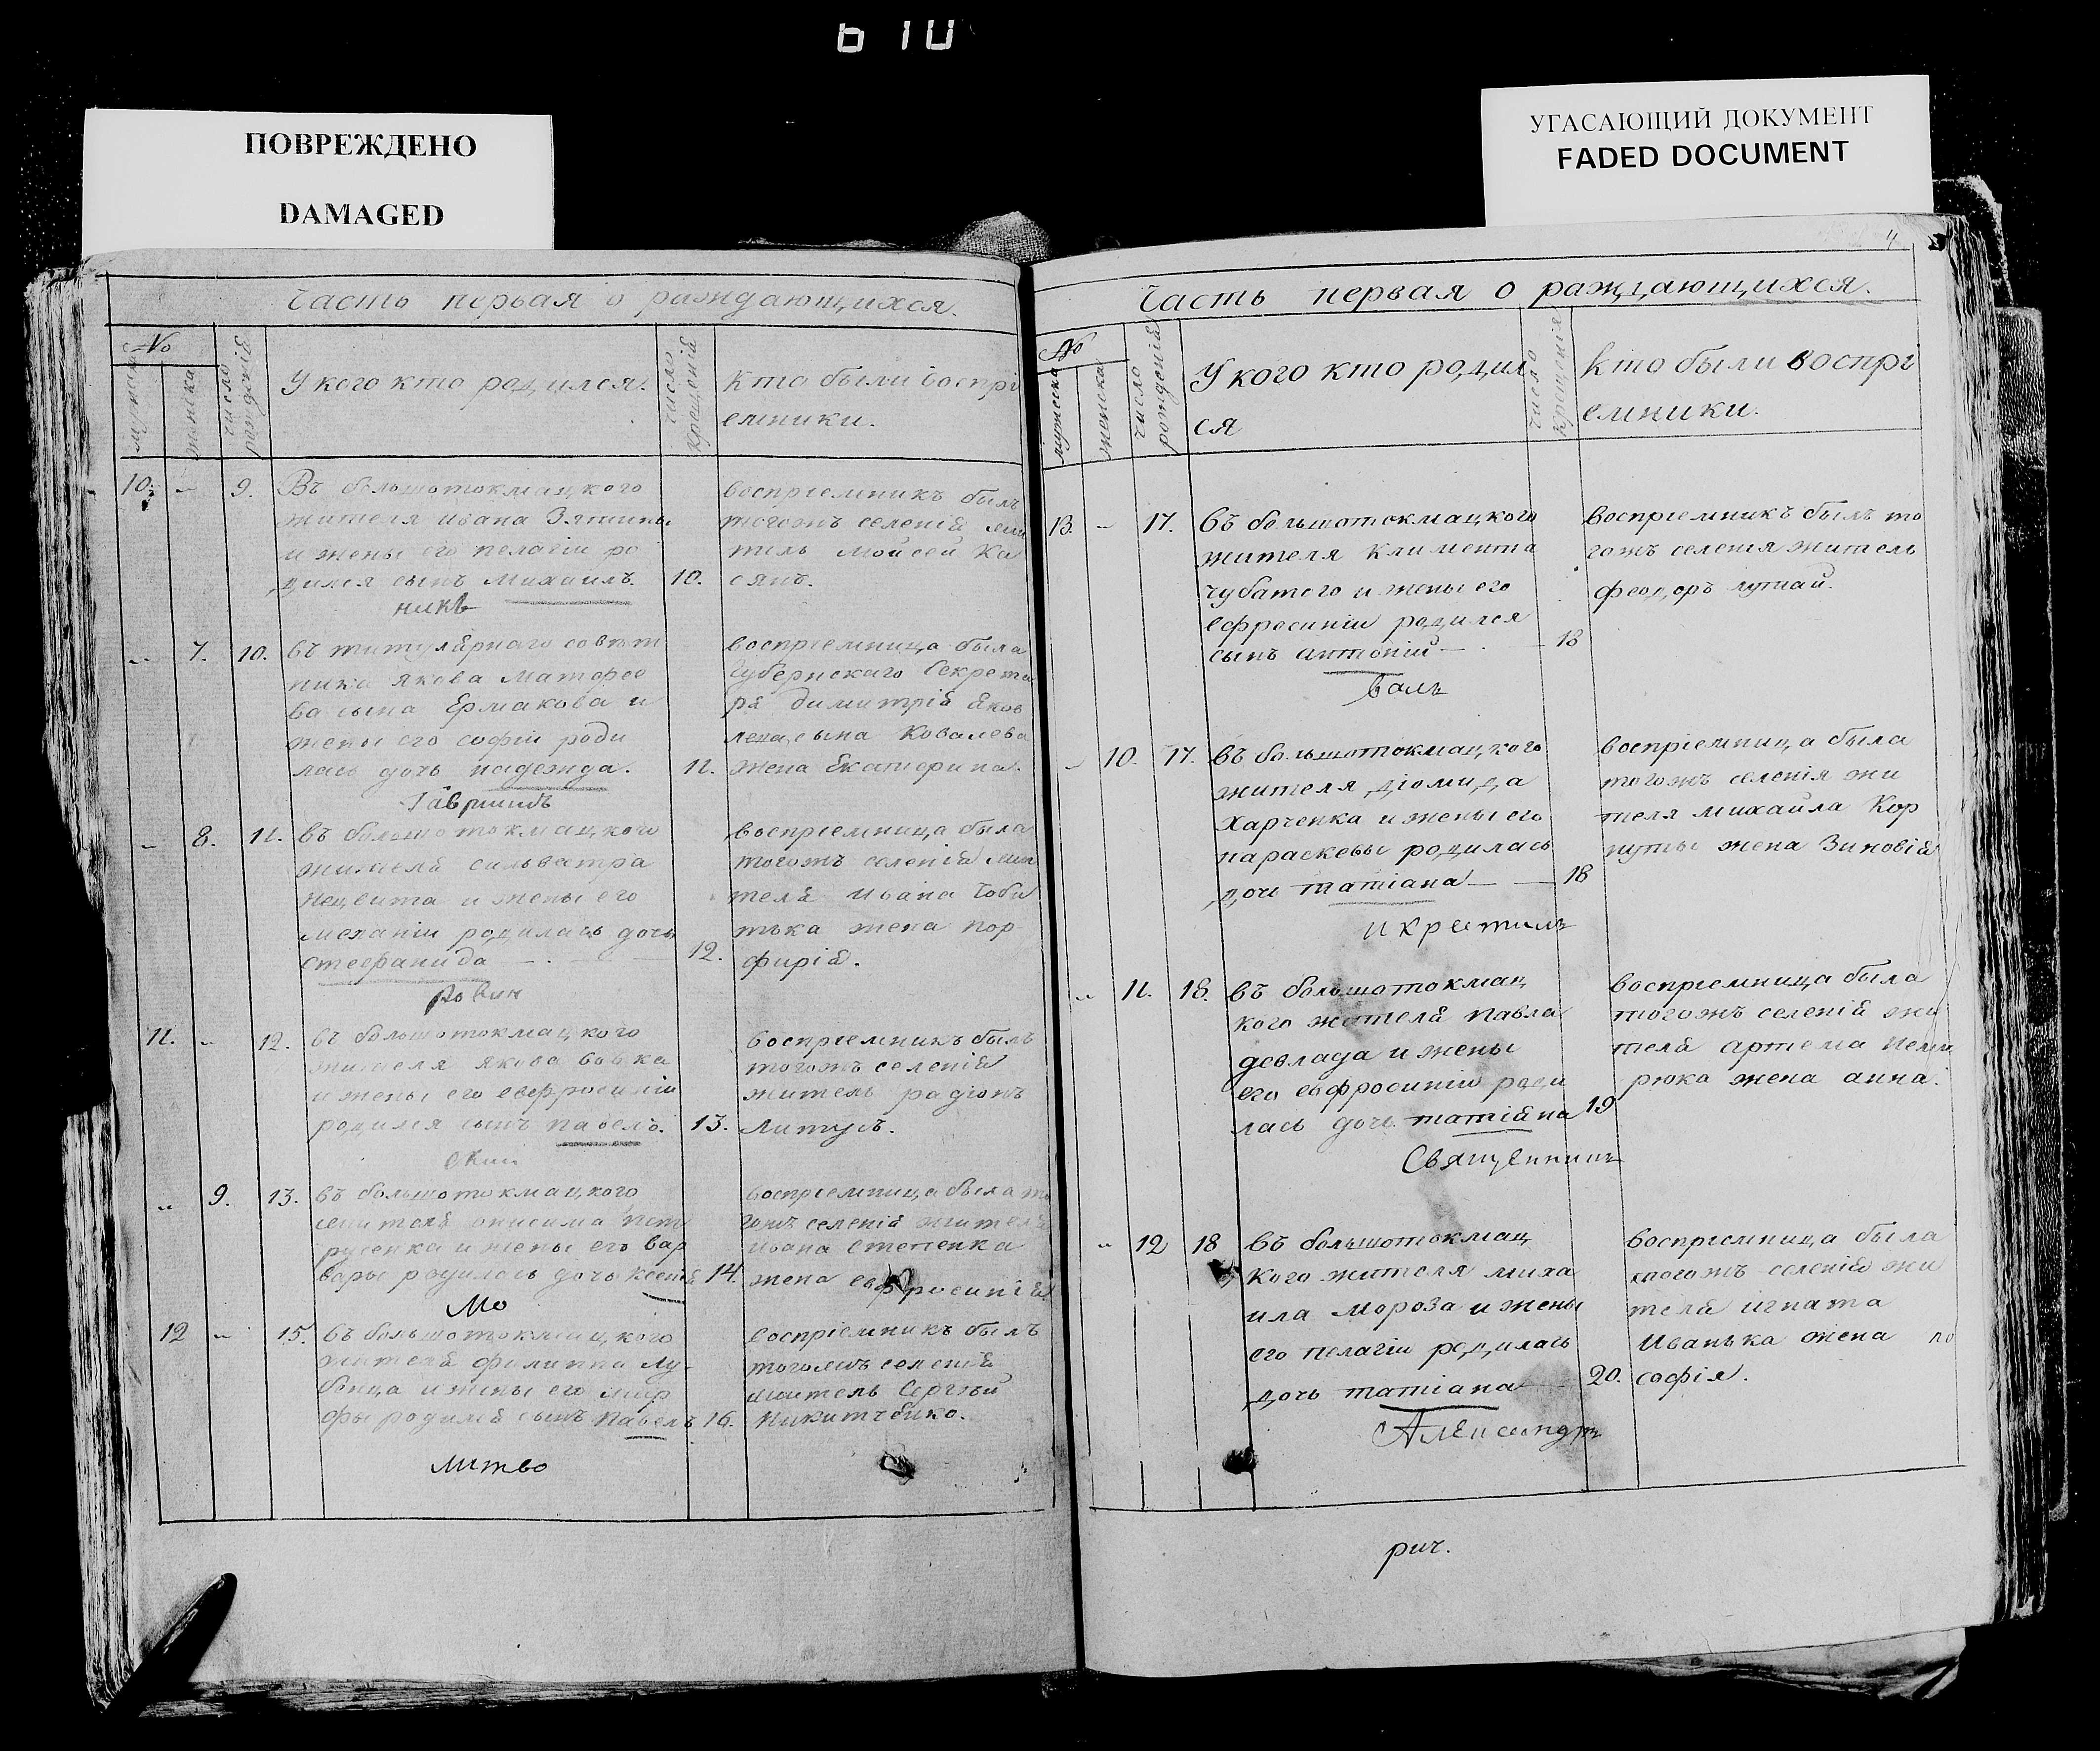 610
ПОВРЕЖДЕНО
DAMAGED
УГАСАЮЩИЙ ДОКУМЕНТ
FADED DOCUMENT
Часть первая о раждающихся.
№
мужеска
женска
число рожденій
У кого кто родился.
число крещеній
Кто были воспрі
емники.
10. 9. Въ большотокмацкого
жителя ивана Зятина
и жены его пелагіи ро
дился сынъ михаилъ. 10.
воспріемникъ былъ
тогожъ селенія жи
тель мойсей Ка
сянъ.
никъ
7. 10. въ титулярнаго совѣт
ника якова матфее
ва сына Ермакова и
жены его софіи роди
лась дочь надежда. 11.
воспріемница была
Губернскаго Секрета
ря димитрія Яков
лева сына Ковалева
жена Екатерина.
Гавріилъ
8. 11. въ большотокмацкого
жителя сильвестра
нецвита и жены его
меланіи родилась дочь
стефанида 12.
воспріемница была
тогожъ селенія жи
теля ивана
жена пор
фирія.
ровин
11. 12. въ большотокмацкого
жителя якова
и жены его евфросиніи
родился сынъ павелъ. 13.
воспріемникъ былъ
тогожъ селенія
житель радіонъ
Литусъ.
скій
9. 13. въ большотокмацкого
жителя онисима пет
русенка и жены его вар
вары родилась дочь ксенія 14.
воспріемница была то
гожъ селенія жителя
ивана степенка
жена евфросинія
Мо
12 15. въ большотокмацкого
жителя филиппа лу-
бенца и жены его мар
фы родился сынъ павелъ 16.
воспріемникъ былъ
тогожъ селенія
житель Сергѣй
литво
4
Часть первая о раждающихся.
№
мужеска
женска
число рожденій
У кого кто родил
ся
число крещенія
Кто были воспрі
емники.
13. 17. въ большотокмацкого
жителя климента
чубатого и жены его
ефросиніи родился
сынъ антоній 18
воспріемникъ былъ то
гожъ селенія житель
феодоръ лупай.
валъ
10. 17. въ большотокмацкого
жителя діомида
Харченка и жены его
параскевы родилась
дочь татіана 18
воспріемница была
тогожъ селенія жи
теля михаила Кор
путы жена Зиновія
и крестилъ
11. 18. въ большотокмац
кого жителя павла
девлада и жены
его евфросиніи роди
лась дочь татіяна 19
воспріемница была
тогожъ селенія жи
теля артема
рюка жена анна.
Священникъ
12 18 въ большотокмац
кого жителя миха
ила мороза и жены
его пелагіи родилась
дочь татіана 20.
воспріемница была
тогожъ селенія жи
теля игната
Иванька жена
софія.
Александр
рич.